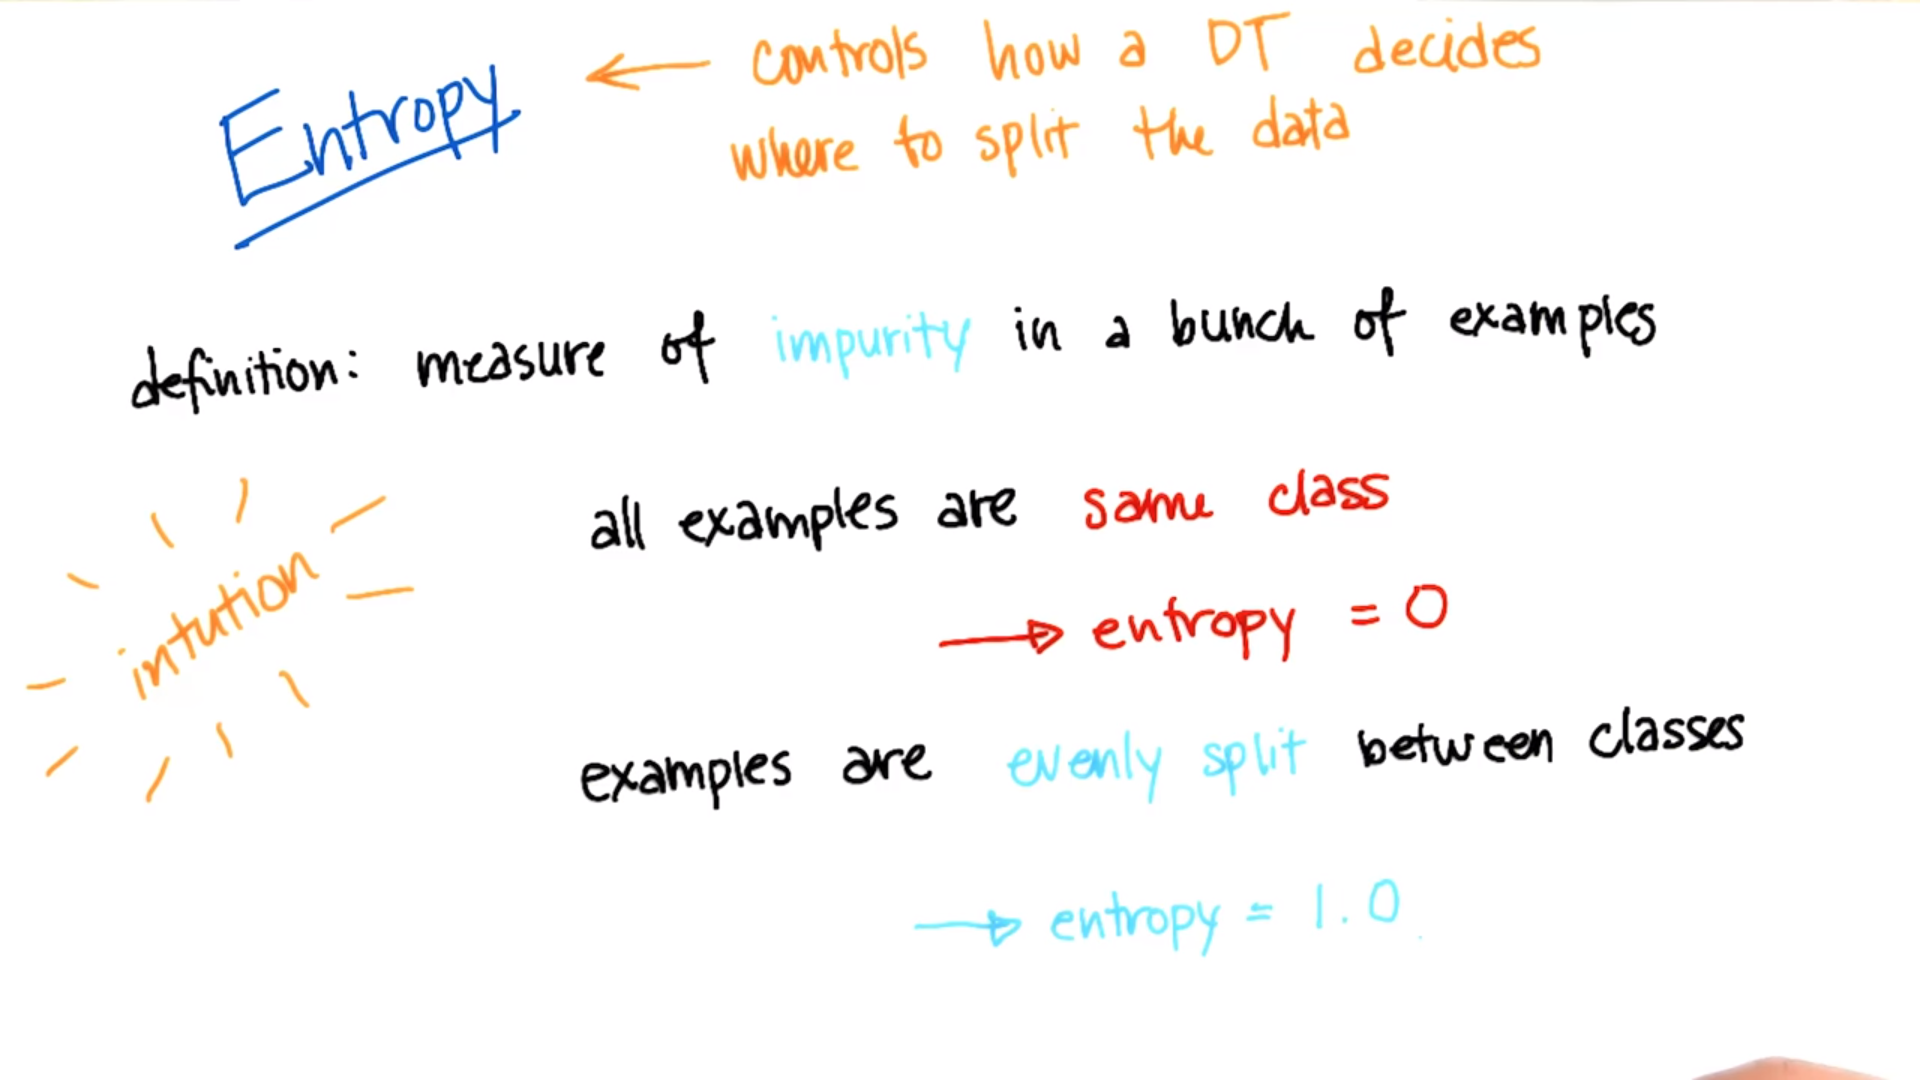 Entropy ← controls how a DT decides
where to split the data
definition: measure of impurity in a bunch of examples
intution
all examples are same class
→ entropy = 0
examples are evenly split between classes
→ entropy = 1.0